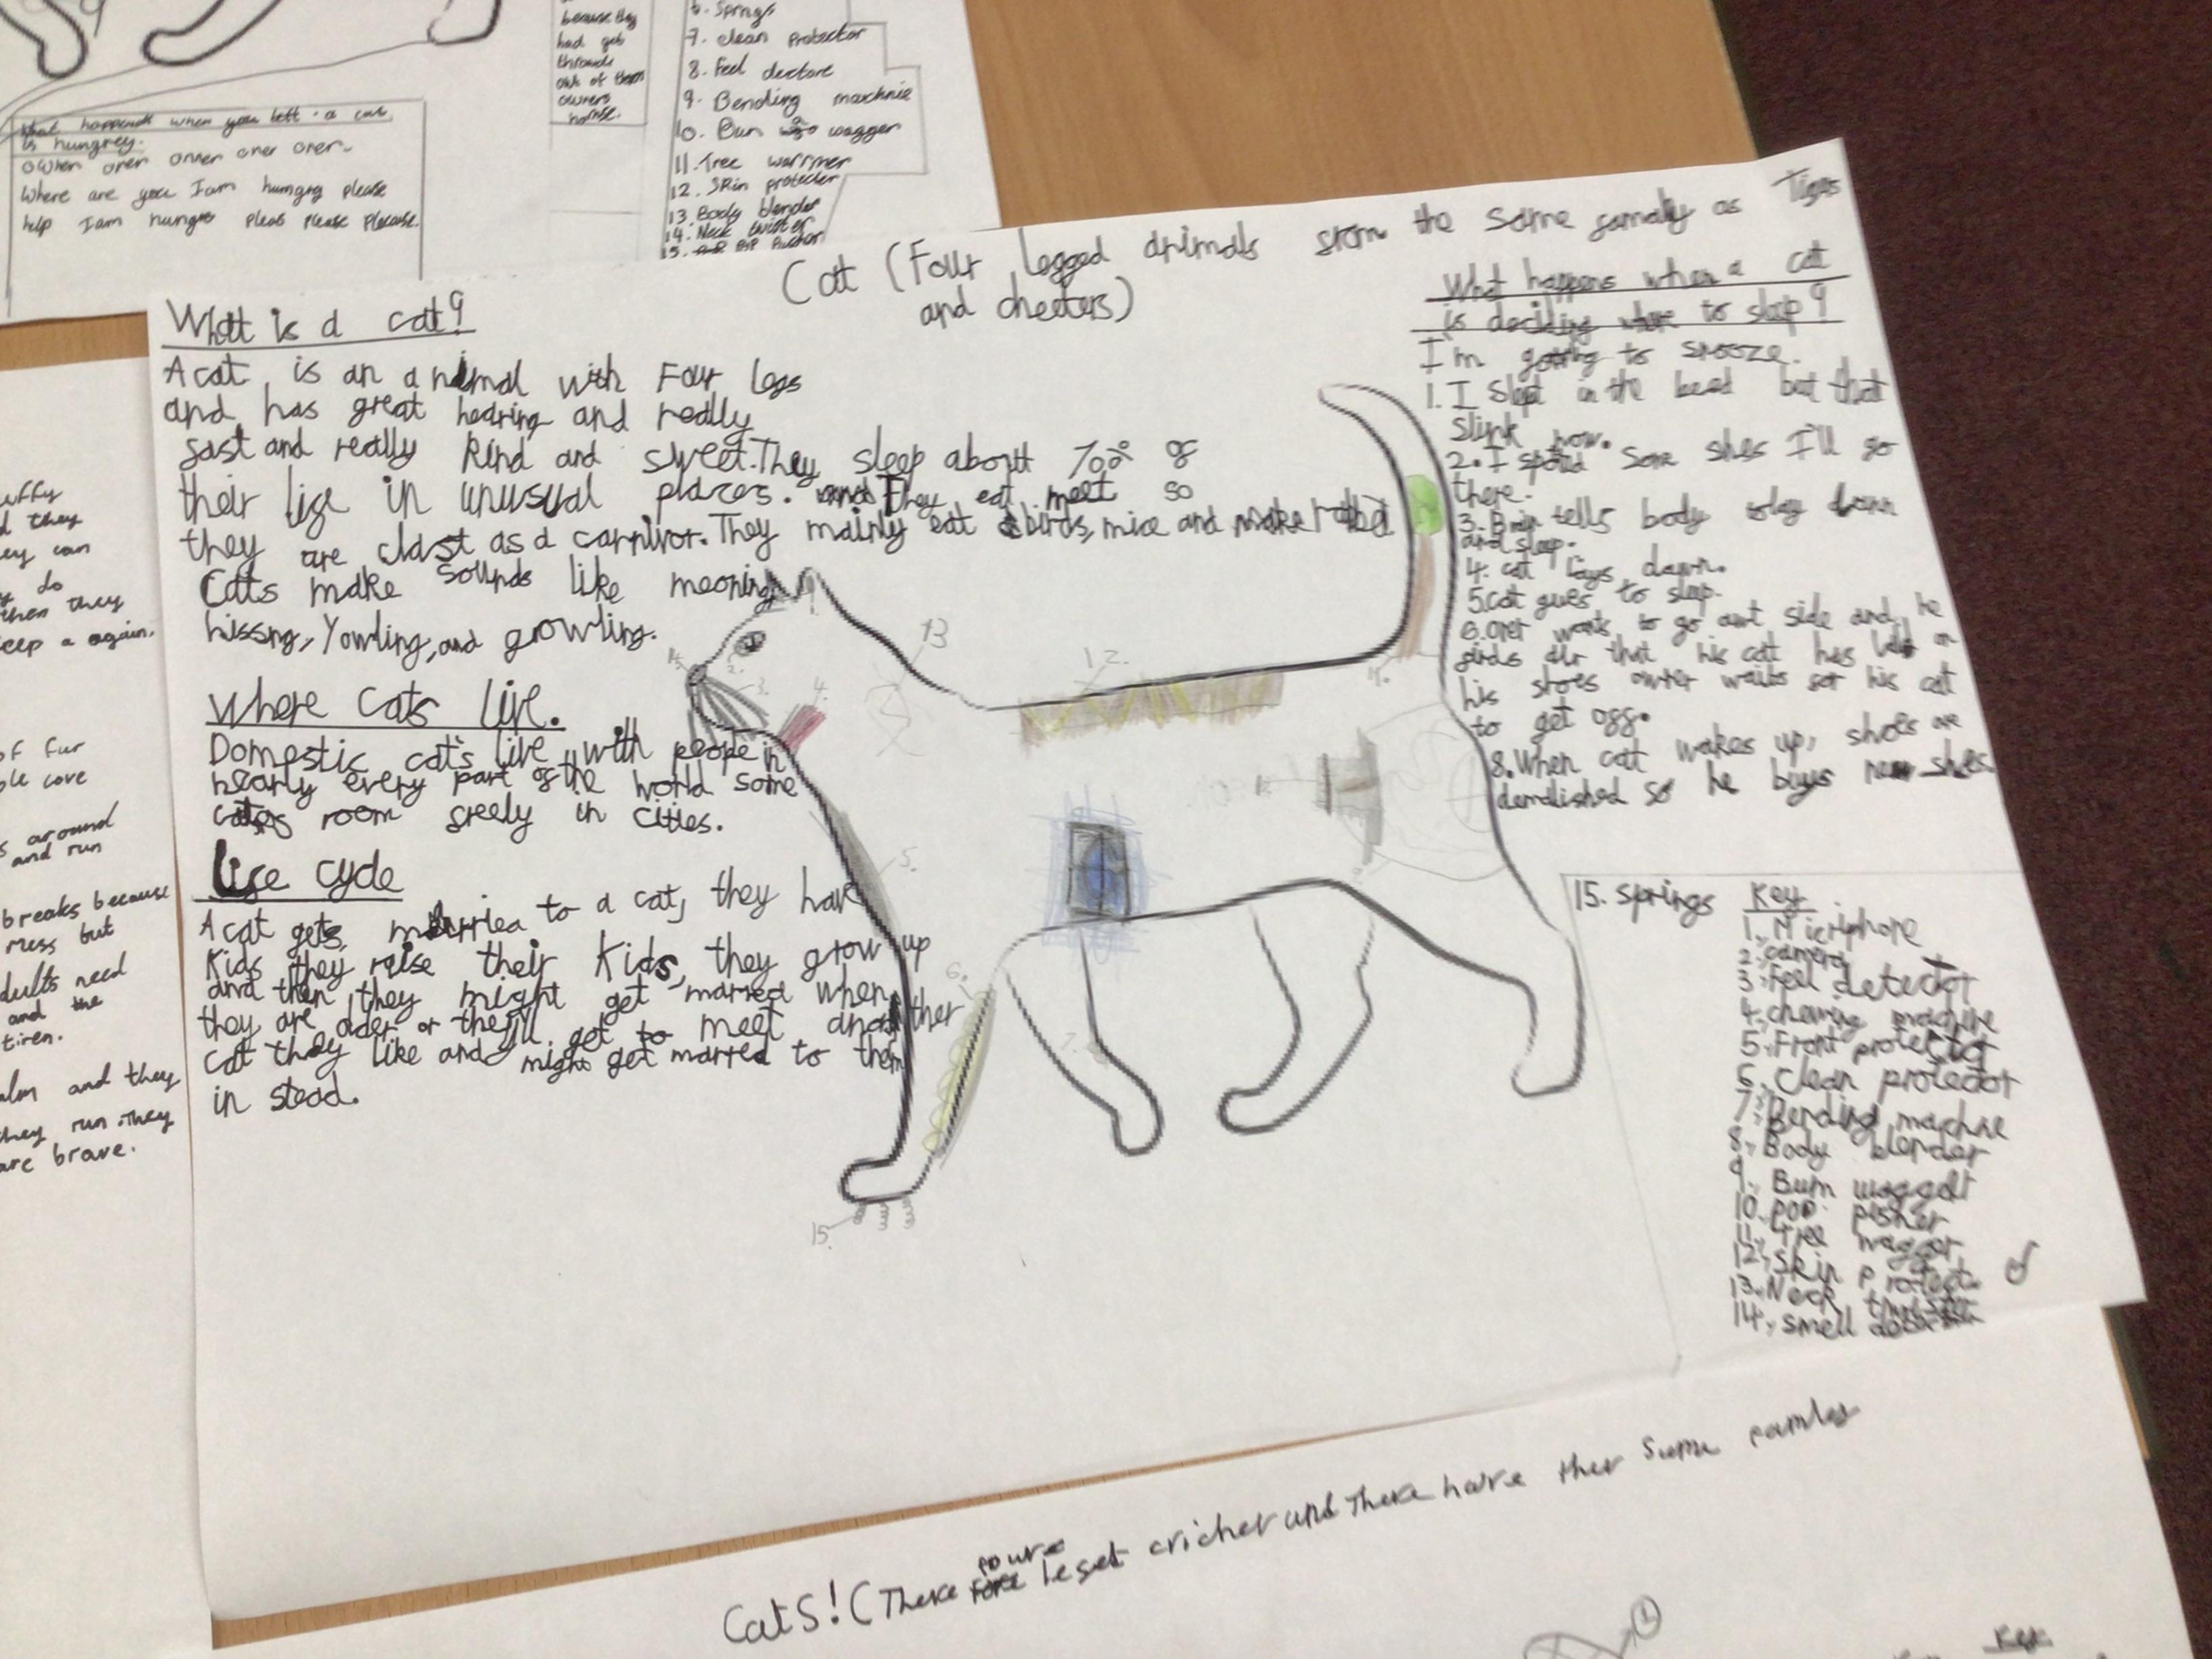 because they
had get
through
out of them
owners
6. Springs
7. clean protector
8. Feel
9. Bending
10. Bum wagger
11. Tree
12. Skin protecter
13. Body blender
14. Neck twister
15.
What happends when you left a cat
is hungrey.
Where are you I am humgrg please
help I am pleas please
uffy
d they
ey can
do
then they
eep a again.
of fur
ple love
s around
and run
breaks because
mess but
dults need
and the
tiren.
alm and they
they run. They
are brave.
Cat (Four legged animals from the same famaly as Tigers
and cheeters)
What is a cat?
A cat is an animal with Four legs
and has great hearing and really
fast and really kind and sweet. They sleep about 70% of
their life in unusual places. They eat meet so
they are clast as a carnivor. They mainly eat birds, mice and
Cats make sounds like meoning,
hissing, Yowling, and growling.
Where cats live.
Domestic cat's live with people in
nearly every part of the world some
cats room freely in cities.
Life cycle
A cat gets married to a cat, they have
Kids they raise their Kids, they grow up
and then they might get married when
they are older or they'll get to meet another
cat they like and might get married to them
in stead.
What happens when a cat
is deciding where to sleep?
I'm going to snooze.
1. I slept in the bead but that
stink now.
2. I some shes I'll go
there.
3. Brain tells body to lay down
and sleep.
4. cat lays down.
5. cat gues to sleep.
6. oner wants to go aut side and he
finds aur that his cat has on
his shoes owner waits for his cat
to get off.
8. When cat wakes up, shoes are
demolished so he buys new shoes.
14.
2.
3.
4.
13
12.
11.
5.
6.
7.
15.
15. springs
Key
1. Micriphone
2. camera
3. Feel detector
4. chewing machine
5. Front protector
6. Clean protector
7. Bending machine
8. Body blender
9. Bum waggelt
10. poo pusher
11. Tree wagger
12. Skin protect
13. Neck twister
14. smell
Cats! (There foure leset cricher and There have ther same
1
Key